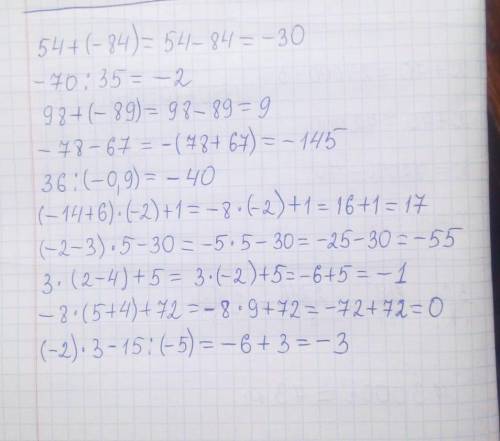 54+(-84)=54-84=-30
-70:35=-2
98+(-89)=98-89=9
-78-67=-(78+67)=-145
36:(-0,9)=-40
(-14+6)·(-2)+1=-8·(-2)+1=16+1=17
(-2-3)·5-30=-5·5-30=-25-30=-55
3·(2-4)+5=3·(-2)+5=-6+5=-1
-8·(5+4)+72=-8·9+72=-72+72=0
(-2)·3-15:(-5)=-6+3=-3